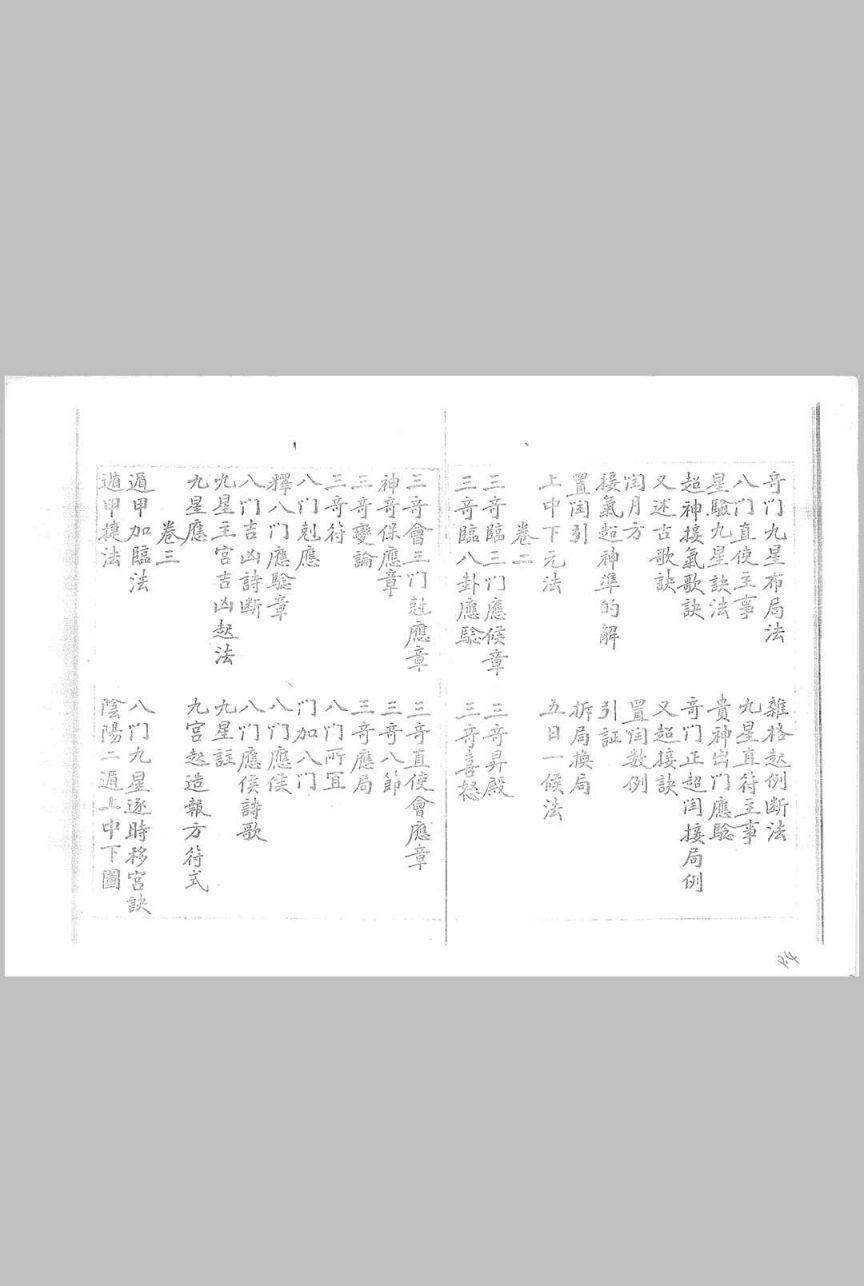 奇门九星布局法　雜格起例断法
八门直使主事　九星直符主事
星驗九星訣法　貴神出门應驗
超神接氣歌訣　奇门正超闰接局例
又述古歌訣　又超接訣
闰月方　置闰数例
接氣超神準的解　引証
置闰引　拆局換局
上中下元法　五日一候法
卷二
三奇臨三门應候章　三奇昇殿
三奇臨八卦應驗　三奇喜怒
三奇會三门尅應章　三奇直使會應章
神奇保應章　三奇八節
三奇變論　三奇應局
三奇符　八门所宜
八门剋應　门加八门
釋八门應驗章　八门應候
八门吉凶詩断　八门應侯詩歌
九星主宮吉凶起法　九星註
九星應　九宮起造報方符式
卷三
遁甲加臨法　八门九星逐時移宮訣
遁甲捷法　陰陽二遁上中下圖
P.4